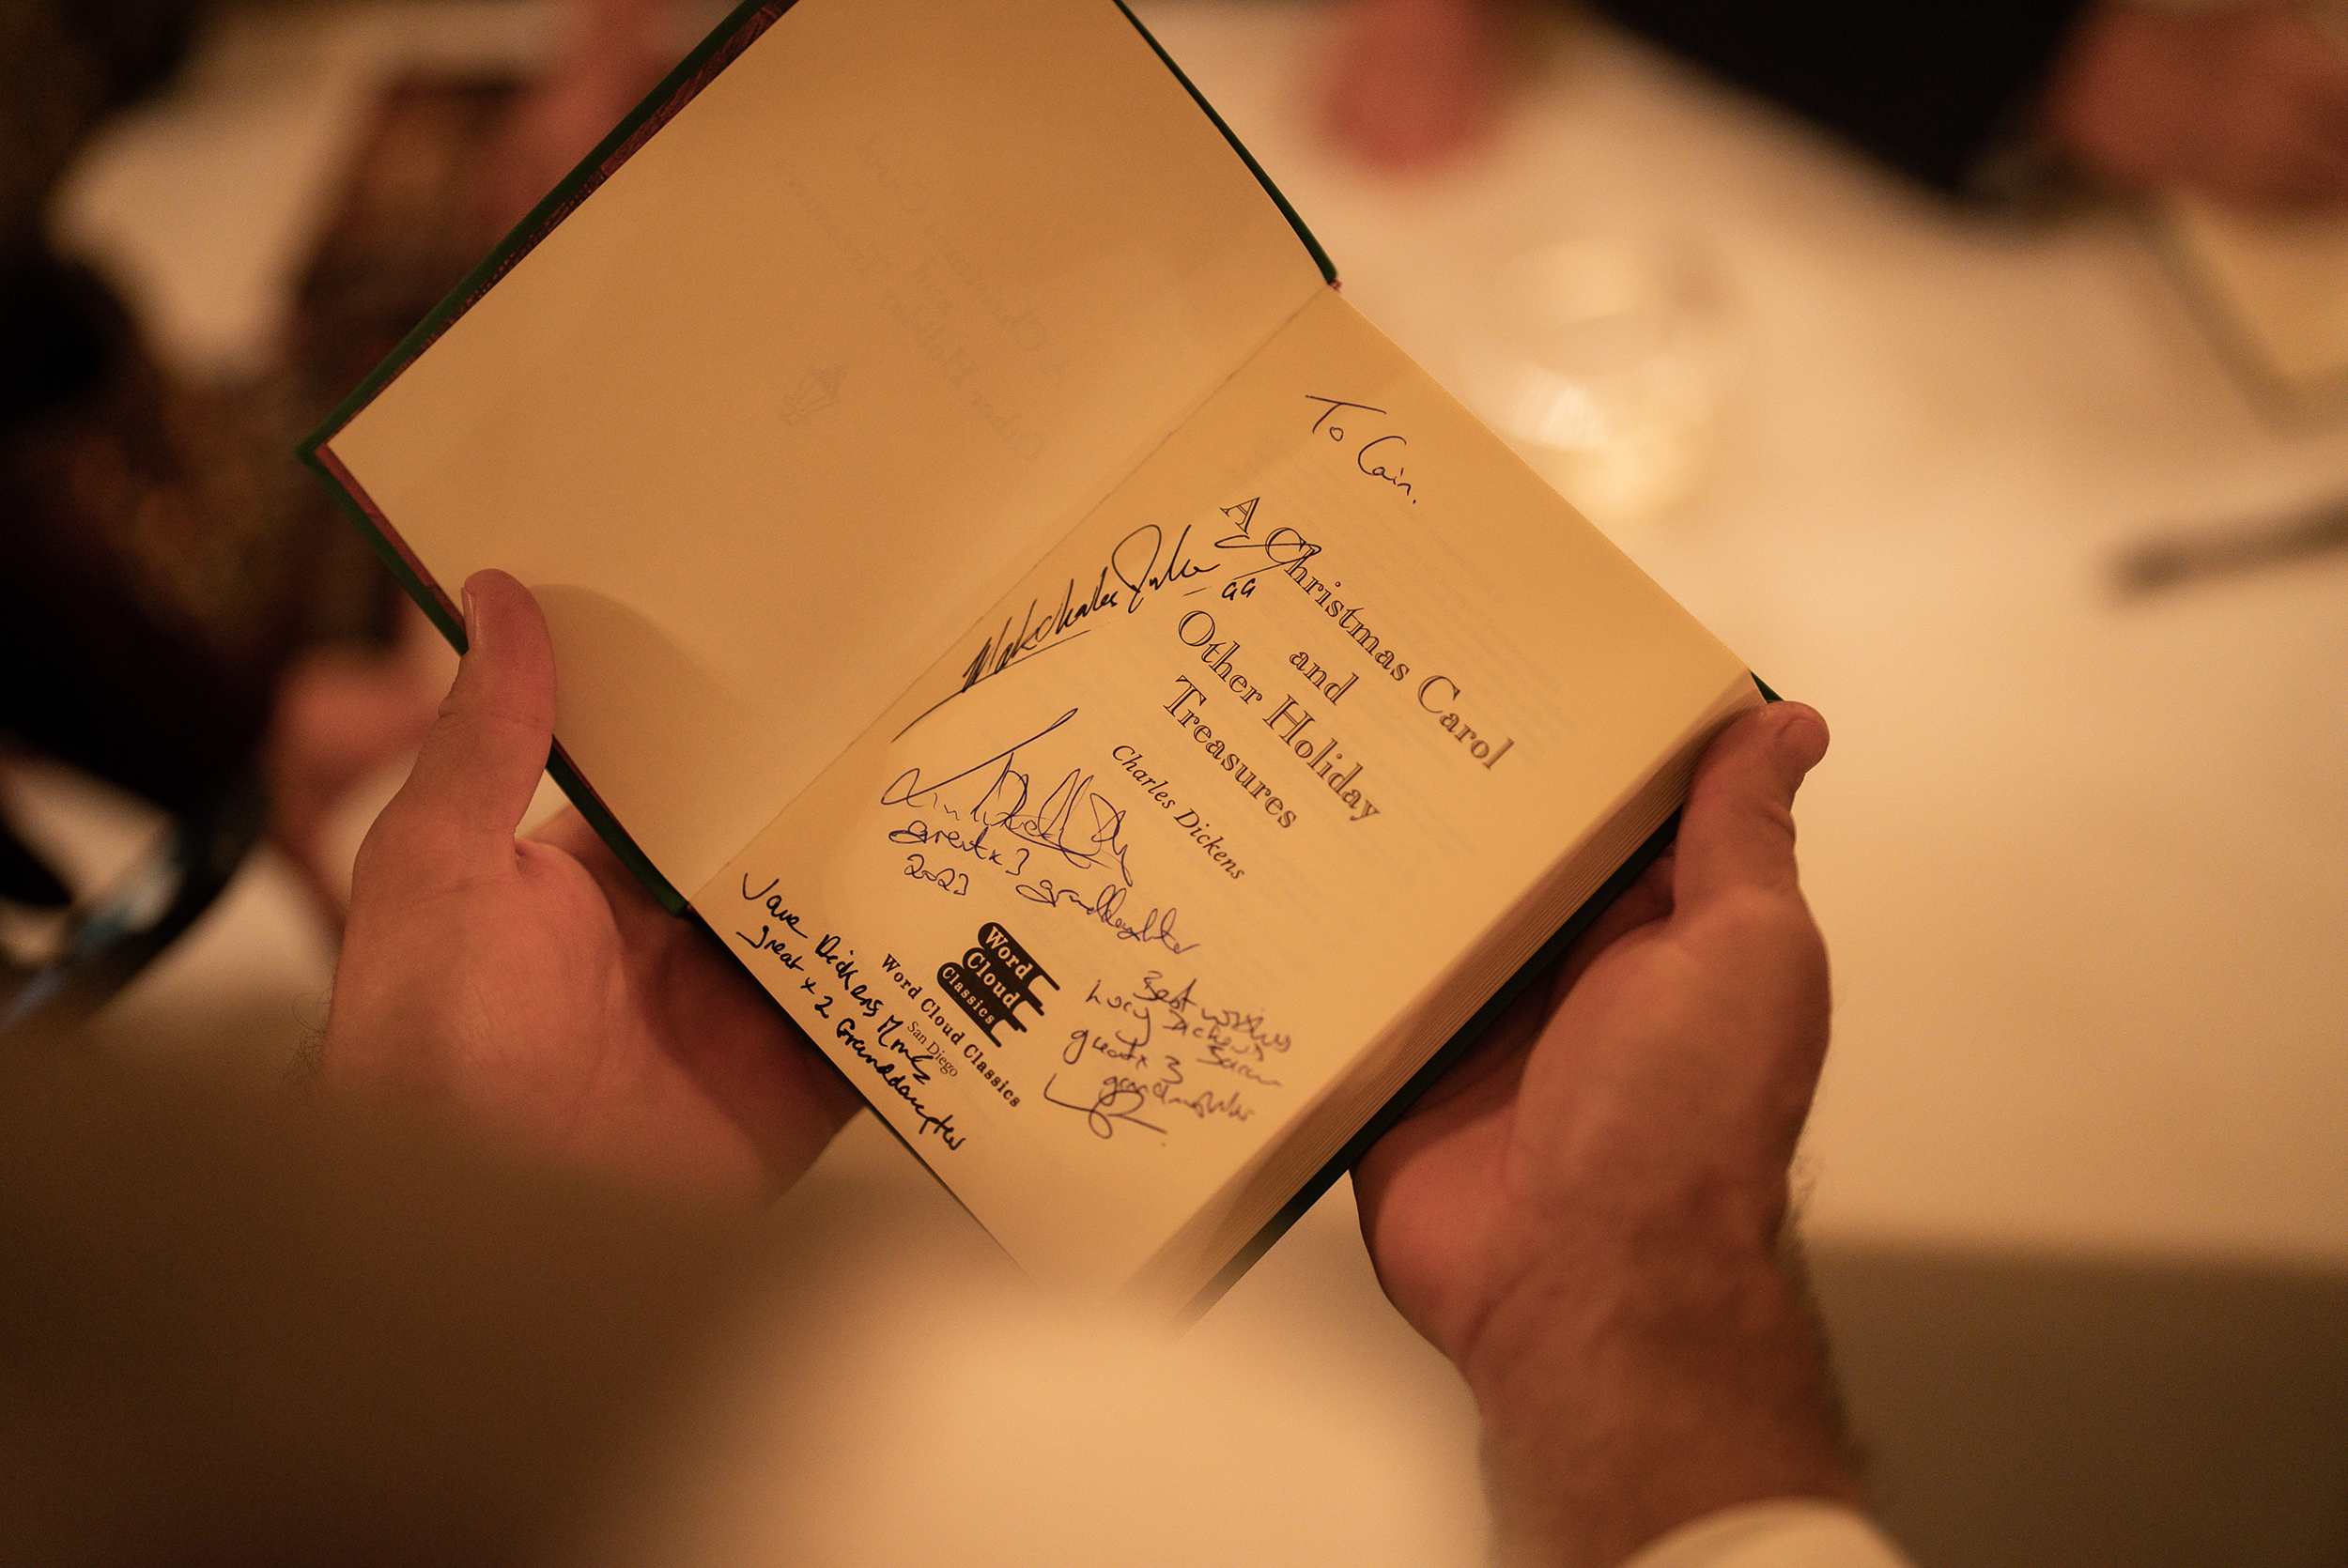 To Cain.
A Christmas Carol
and
Other Holiday
Treasures
Charles Dickens
Mark Charles Dickens
great x 3 granddaughter
2023
Word
Cloud
Classics
Word Cloud Classics
San Diego
Jane Dickens Monk
great x 2 Granddaughter
Best wishes
Lucy Dickens
great x 3
granddaughter